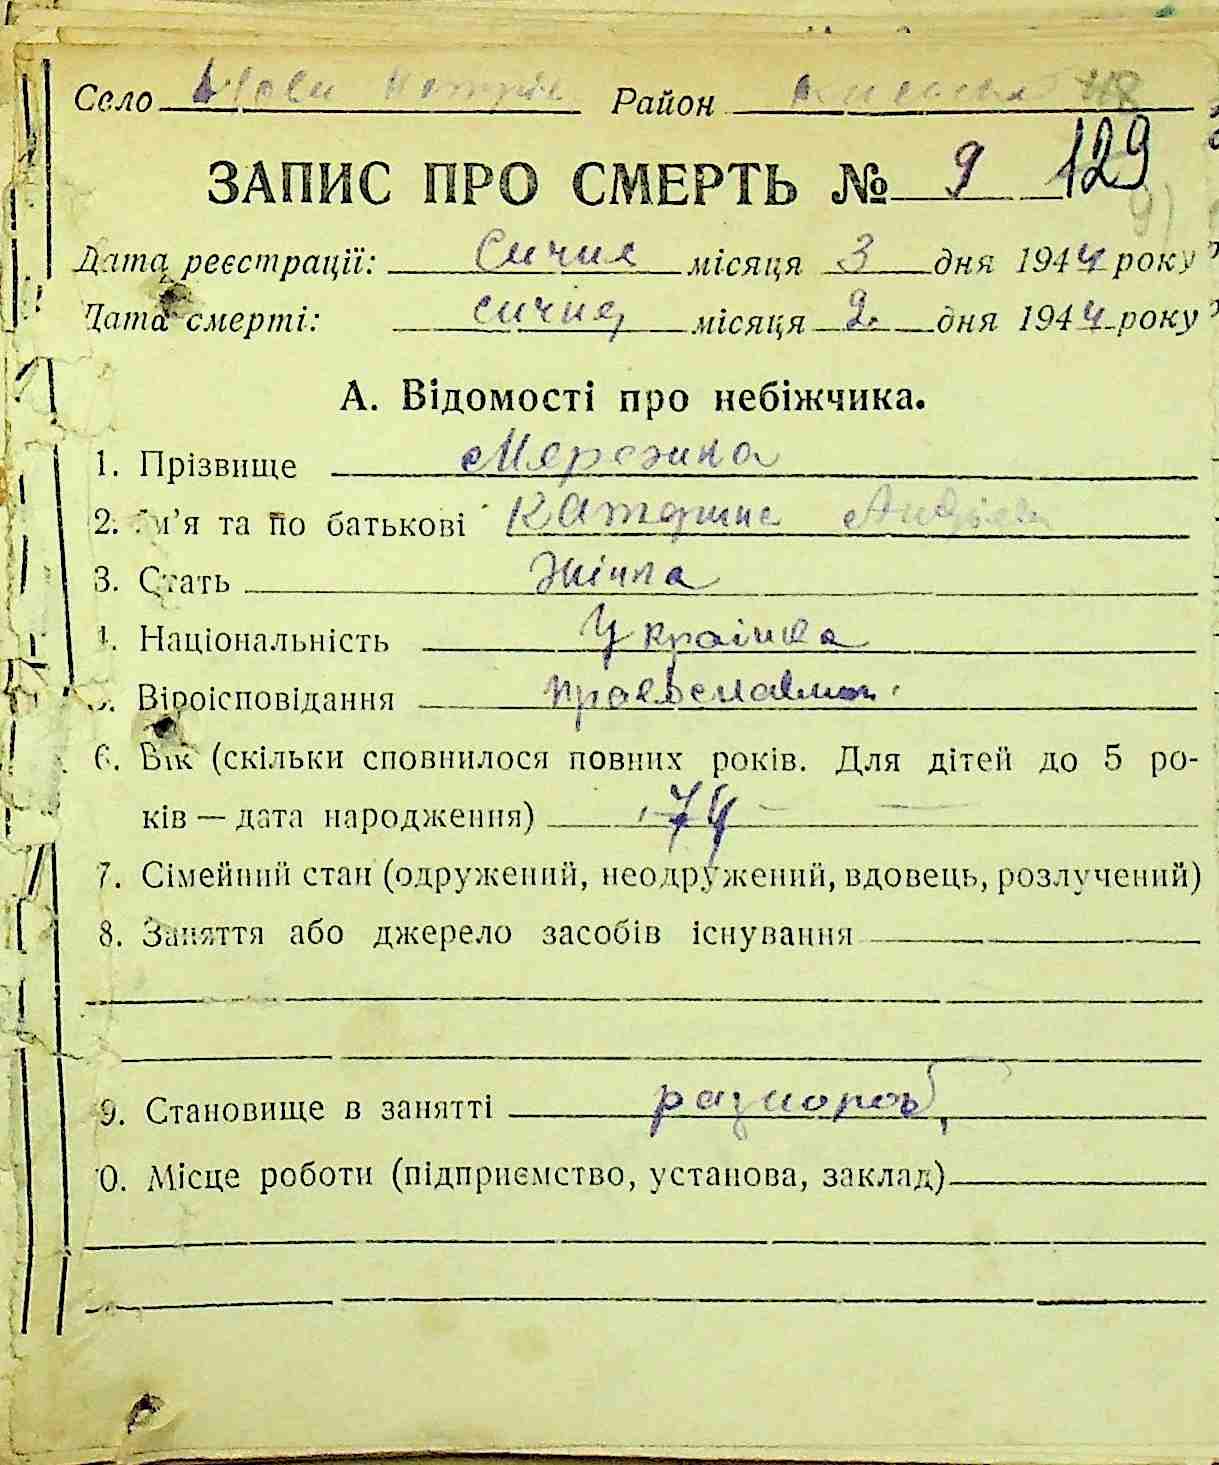 Село Район 118
ЗАПИС ПРО СМЕРТЬ № 9 129
Дата реєстрації: Сичня місяця 3 дня 1944 року
Дата смерті: сичня місяця 2. дня 1944 року
А. Відомості про небіжчика.
1. Прізвище Мережина
2. Ім’я та по батькові Катерина
3. Стать Жінка
4. Національність Українка
5. Віроісповідання православна
6. Вік (скільки сповнилося повних років. Для дітей до 5 ро-
ків — дата народження) 74
7. Сімейний стан (одружений, неодружений, вдовець, розлучений)
8. Заняття або джерело засобів існування
9. Становище в занятті
0. Місце роботи (підприємство, установа, заклад)